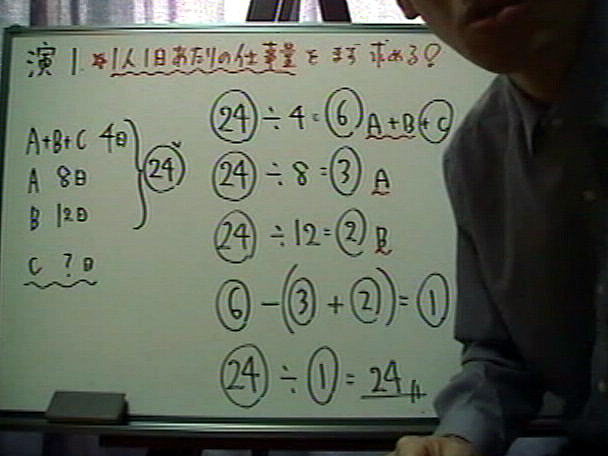 演1. *1人1日あたりの仕事量をまず求める!
A+B+C 4日
A 8日
B 12日
C ?日
24
24÷4=6 A+B+C
24÷8=3 A
24÷12=2 B
6-(3+2)=1
24÷1=24